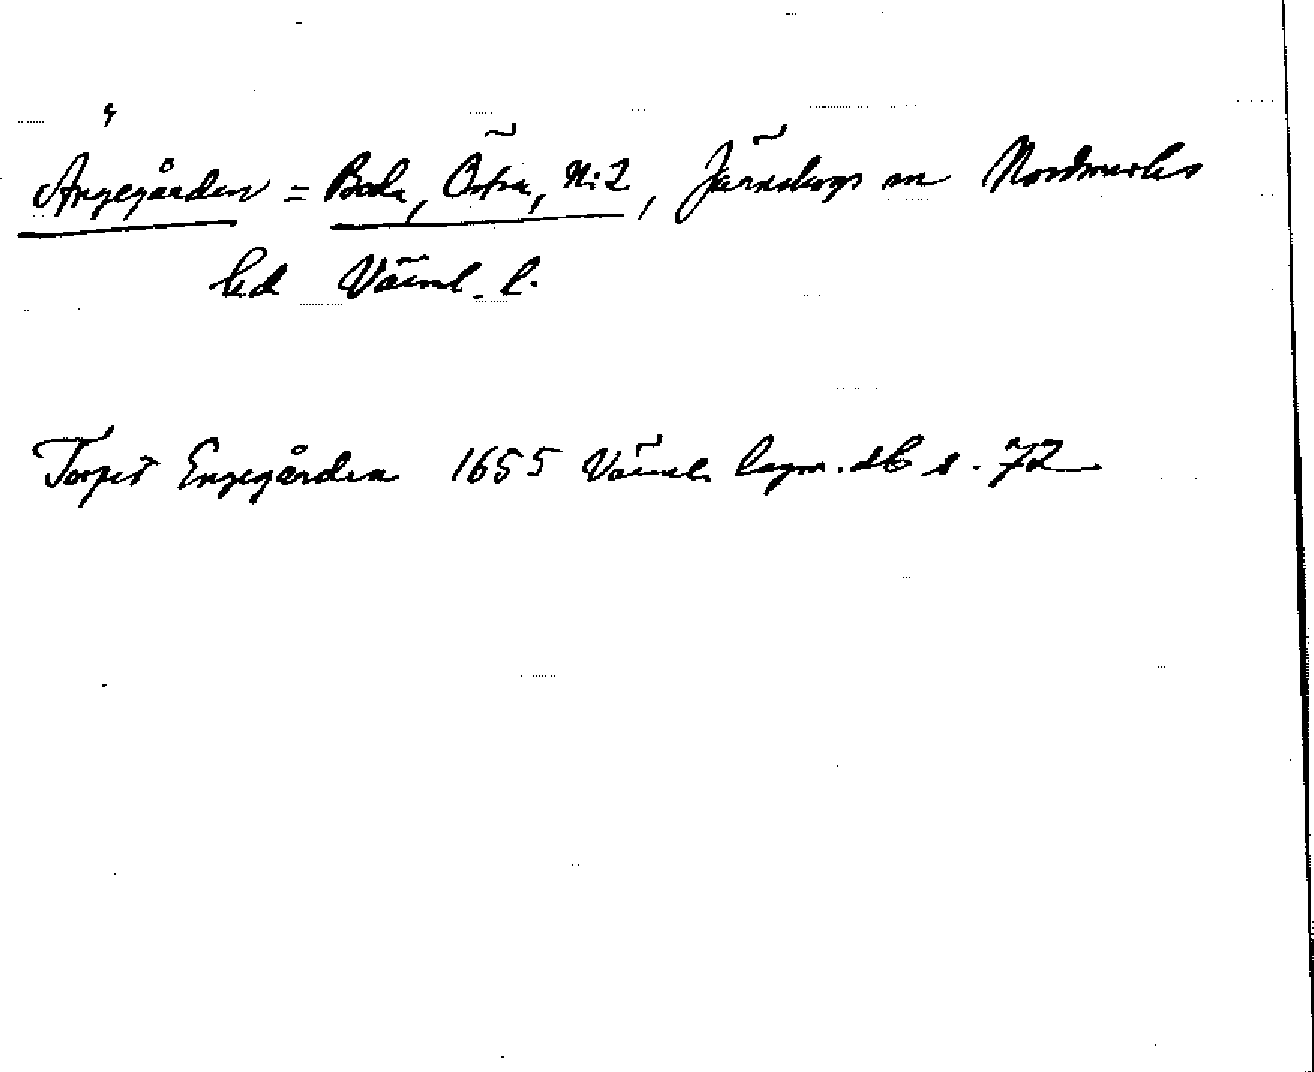 Ängegården = Boda, Östra, N:2, Järnskogs sn Nordmarks
hd Värml. l.
Torpet Engegården 1655 Värml. lagm. db s. 72